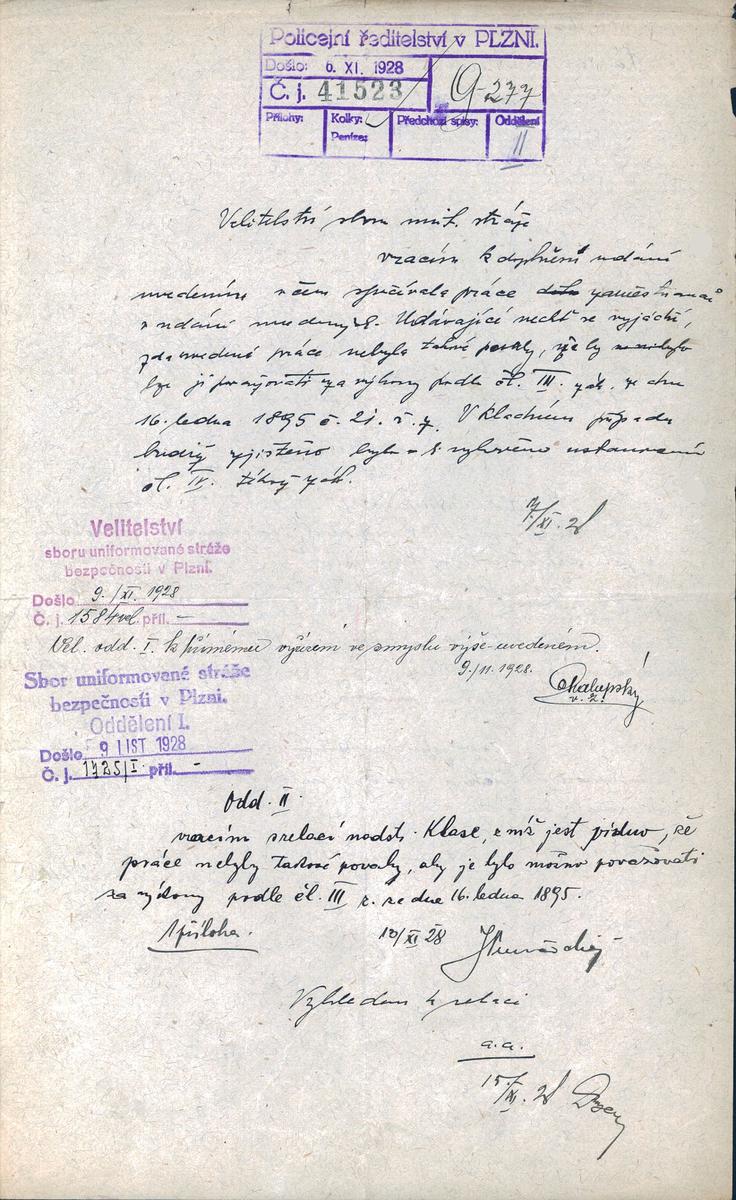 Policejní ředitelství v PLZNI.
Došlo: 6. XI. 1928
Č. j. 41523
G-277
Přílohy: Kolky: Peníze: Předchozí spisy: Oddělení
II
Velitelství sboru unif. stráže
vracím k doplnění udání
uvedením v čem spočívala práce zaměstnanců
v udání uvedených. Udávající nechť se vyjádří,
zda uvedené práce nebyly takové povahy, že by
lze ji považovati za výkony podle čl. III. zák. ze dne
16. ledna 1895 č. 21. ř. z. V kladném případu
budiž zjištěno bylo-li vyhověno ustanovení
čl. IV. téhož zák.
7/XI. 28
Velitelství
sboru uniformované stráže
bezpečnosti v Plzni.
Došlo 9./XI. 1928
Č. j. 1584 vel. příl. -
Vel. odd. I. k přímému vyřízení ve smyslu výše uvedeném.
9./11. 1928.
Sbor uniformované stráže
bezpečnosti v Plzni.
Oddělení I.
Došlo 9 LIST 1928
Č. j. 1725/I. příl. -
Odd. II.
vracím s relací nadstr. Klase, z níž jest vidno, že
práce nebyly takové povahy, aby je bylo možno považovati
za výkony podle čl. III z. ze dne 16. ledna 1895.
1 příloha.
10/XI 28
Vzhledem k relaci
a.a.
15./XI. 28